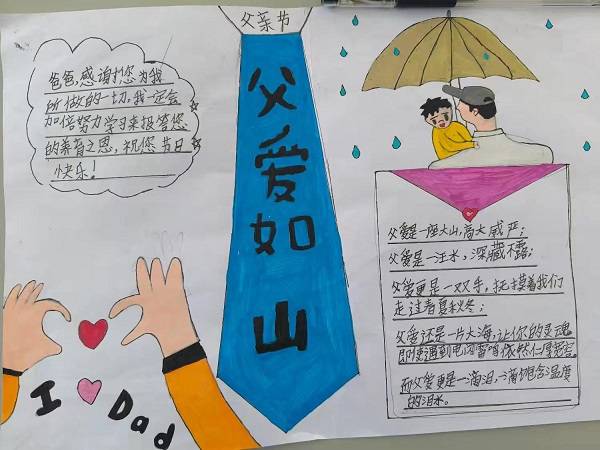 父亲节
父爱如山
爸爸,感谢您为我
所做的一切,我一定会
加倍努力学习来报答您
的养育之恩,祝您节日
快乐!
I Dad
父爱是一座大山,高大威严;
父爱是一汪水,深藏不露;
父爱更是一双手,抚摸着我们
走过春夏秋冬;
父爱还是一片大海,让你的灵魂
即使遇到电闪雷鸣依然仁厚宽容。
而父爱更是一滴泪,一滴饱含温度
的泪水。